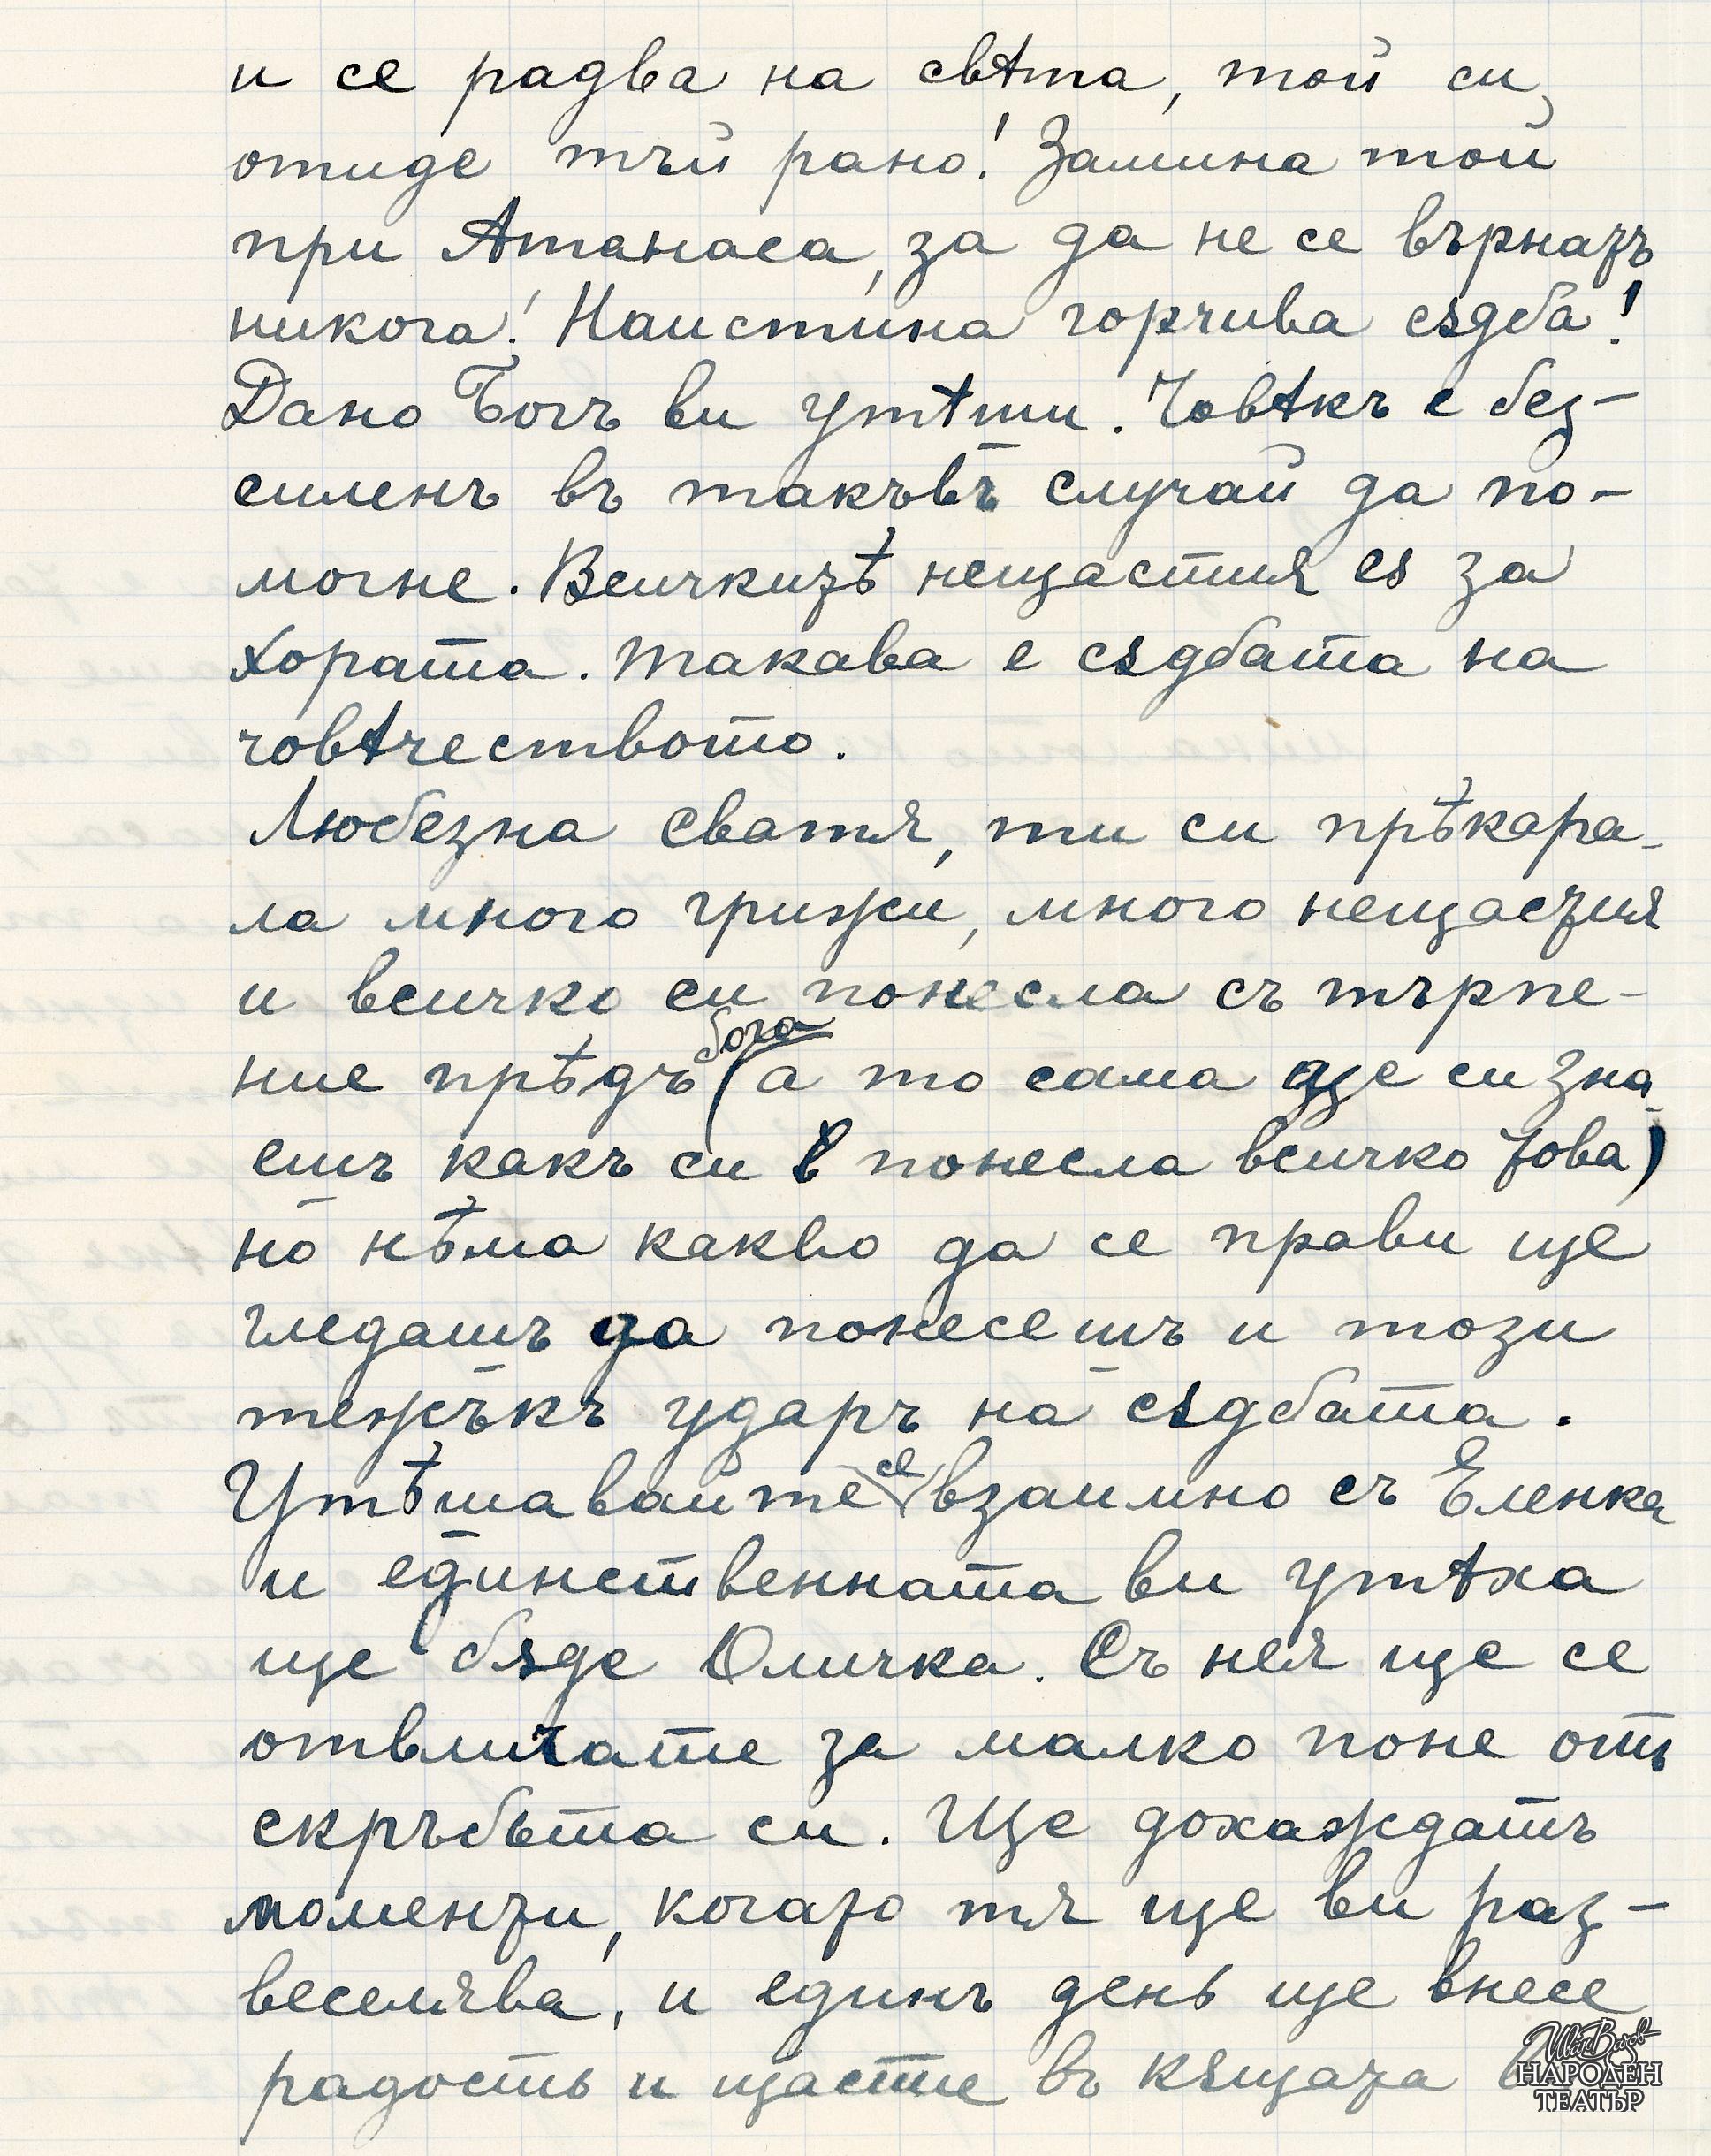 и се радва на свѣта, той си
отиде тъй рано! Замина той
при Атанаса, за да не се върнатъ
никога! Наистина горчива сѫдба!
Дано Богъ ви утѣши. Човѣкъ е без-
силенъ въ такъвъ случай да по-
могне. Всичкитѣ нещастия сѫ за
хората. Такава е сѫдбата на
човѣчеството.
Любезна сватя, ти си прѣкара-
ла много грижи, много нещастия
и всичко си понесла съ търпе-
бога
ние прѣдъ (а то сама ще си зна-
ешъ какъ си понесла всичко това)
но нѣма какво да се прави ще
гледашъ да понесешъ и този
тежъкъ ударъ на сѫдбата.
Утѣшавайте се взаимно съ Еленка
и единственната ви утѣха
ще бѫде Оличка. Съ нея ще се
отвличате за малко поне отъ
скръбьта си. Ще дохаждатъ
моменти, когато тя ще ви раз-
веселява, и единъ день ще внесе
радость и щастие въ кѫщата
Иван Вазов
НАРОДЕН
ТЕАТЪР